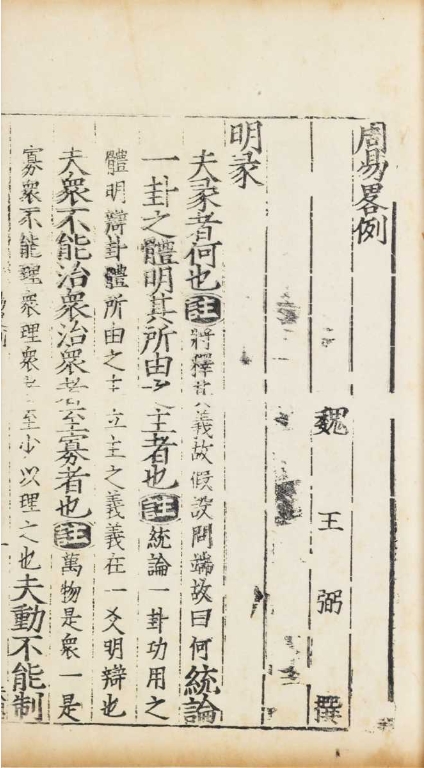 周易畧例
魏 王 弼 撰
明彖
夫彖者何也註將釋其義故假設問端故曰何統論
一卦之體明其所由之主者也註統論一卦功用之
體明辯卦體所由之主立主之義義在一爻明辯也
夫衆不能治衆治衆者至寡者也註萬物是衆一是
寡衆不能理衆理衆者至少以理之也夫動不能制